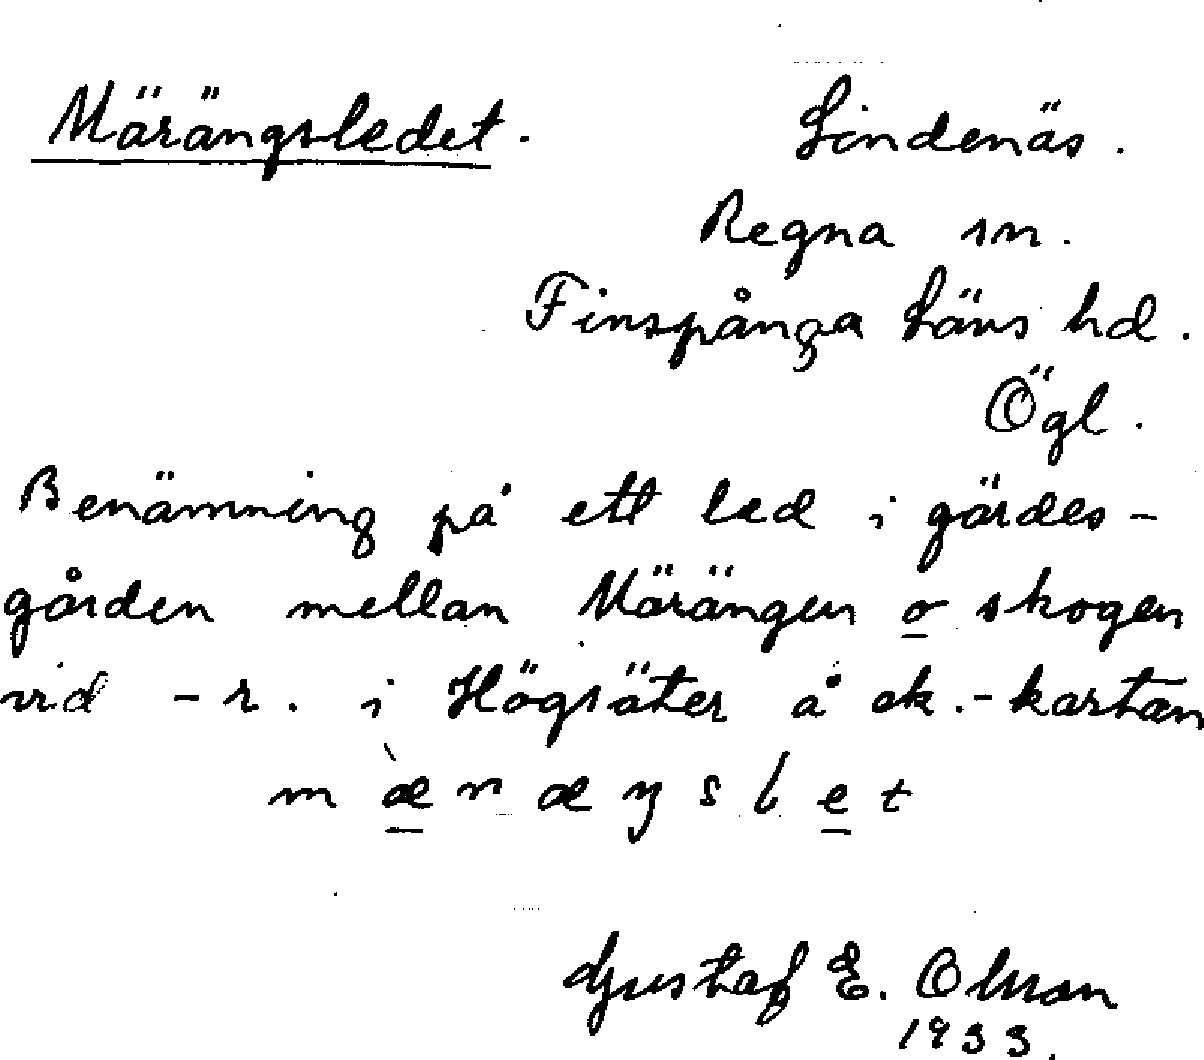 Märängsledet. Lindenäs.
Regna sn.
Finspånga Läns hd.
Ögl.
Benämning på ett led i gärdes-
gården mellan Märängen o skogen
vid -r. i Högsäter å ek.-kartan
m æ̀ r æ ŋ s l e t
Gustaf E. Olsson
1933.